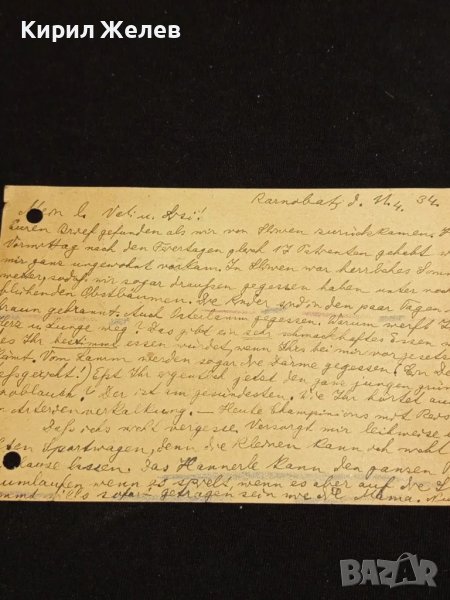 Кирил Желев
Karnobat, d. 11.4. 34.
Mein l. Vati u. Assi!
Euren Brief gefunden als wir von Sliven zurückkamen.
Vormittag nach den Feiertagen gleich 17 Patienten gehabt
mir ganz ungewohnt vorkam. In Sliven war herrliches
wetter, sodaß wir sogar draußen gegessen haben unter
blühenden Obstbäumen. Die Kinder sind in den paar Tagen
braun gebrannt. Auch Osterlamm gegessen. Warum werft Ihr
Herz u. Lunge weg? Das gibt ein sehr schmackhaftes Essen
es Ihr bestimmt essen würdet, wenn Ihr's bei mir vorgesetzt
Vom Lamm werden sogar die Därme gegessen.
Eßt Ihr eigentlich jetzt den ganz jungen
Der ist am gesündesten.
Arterienverkalkung. — Heute Champignons mit
Daß ich's nicht vergesse. Versorgt mir leihweise
Sportwagen, denn die Kleinen kann ich wohl
Hause lassen. Das Hannerle kann den ganzen
rumlaufen wenn es spielt, wenn es aber auf die
sofort getragen sein wie die Mama.
BAZAR